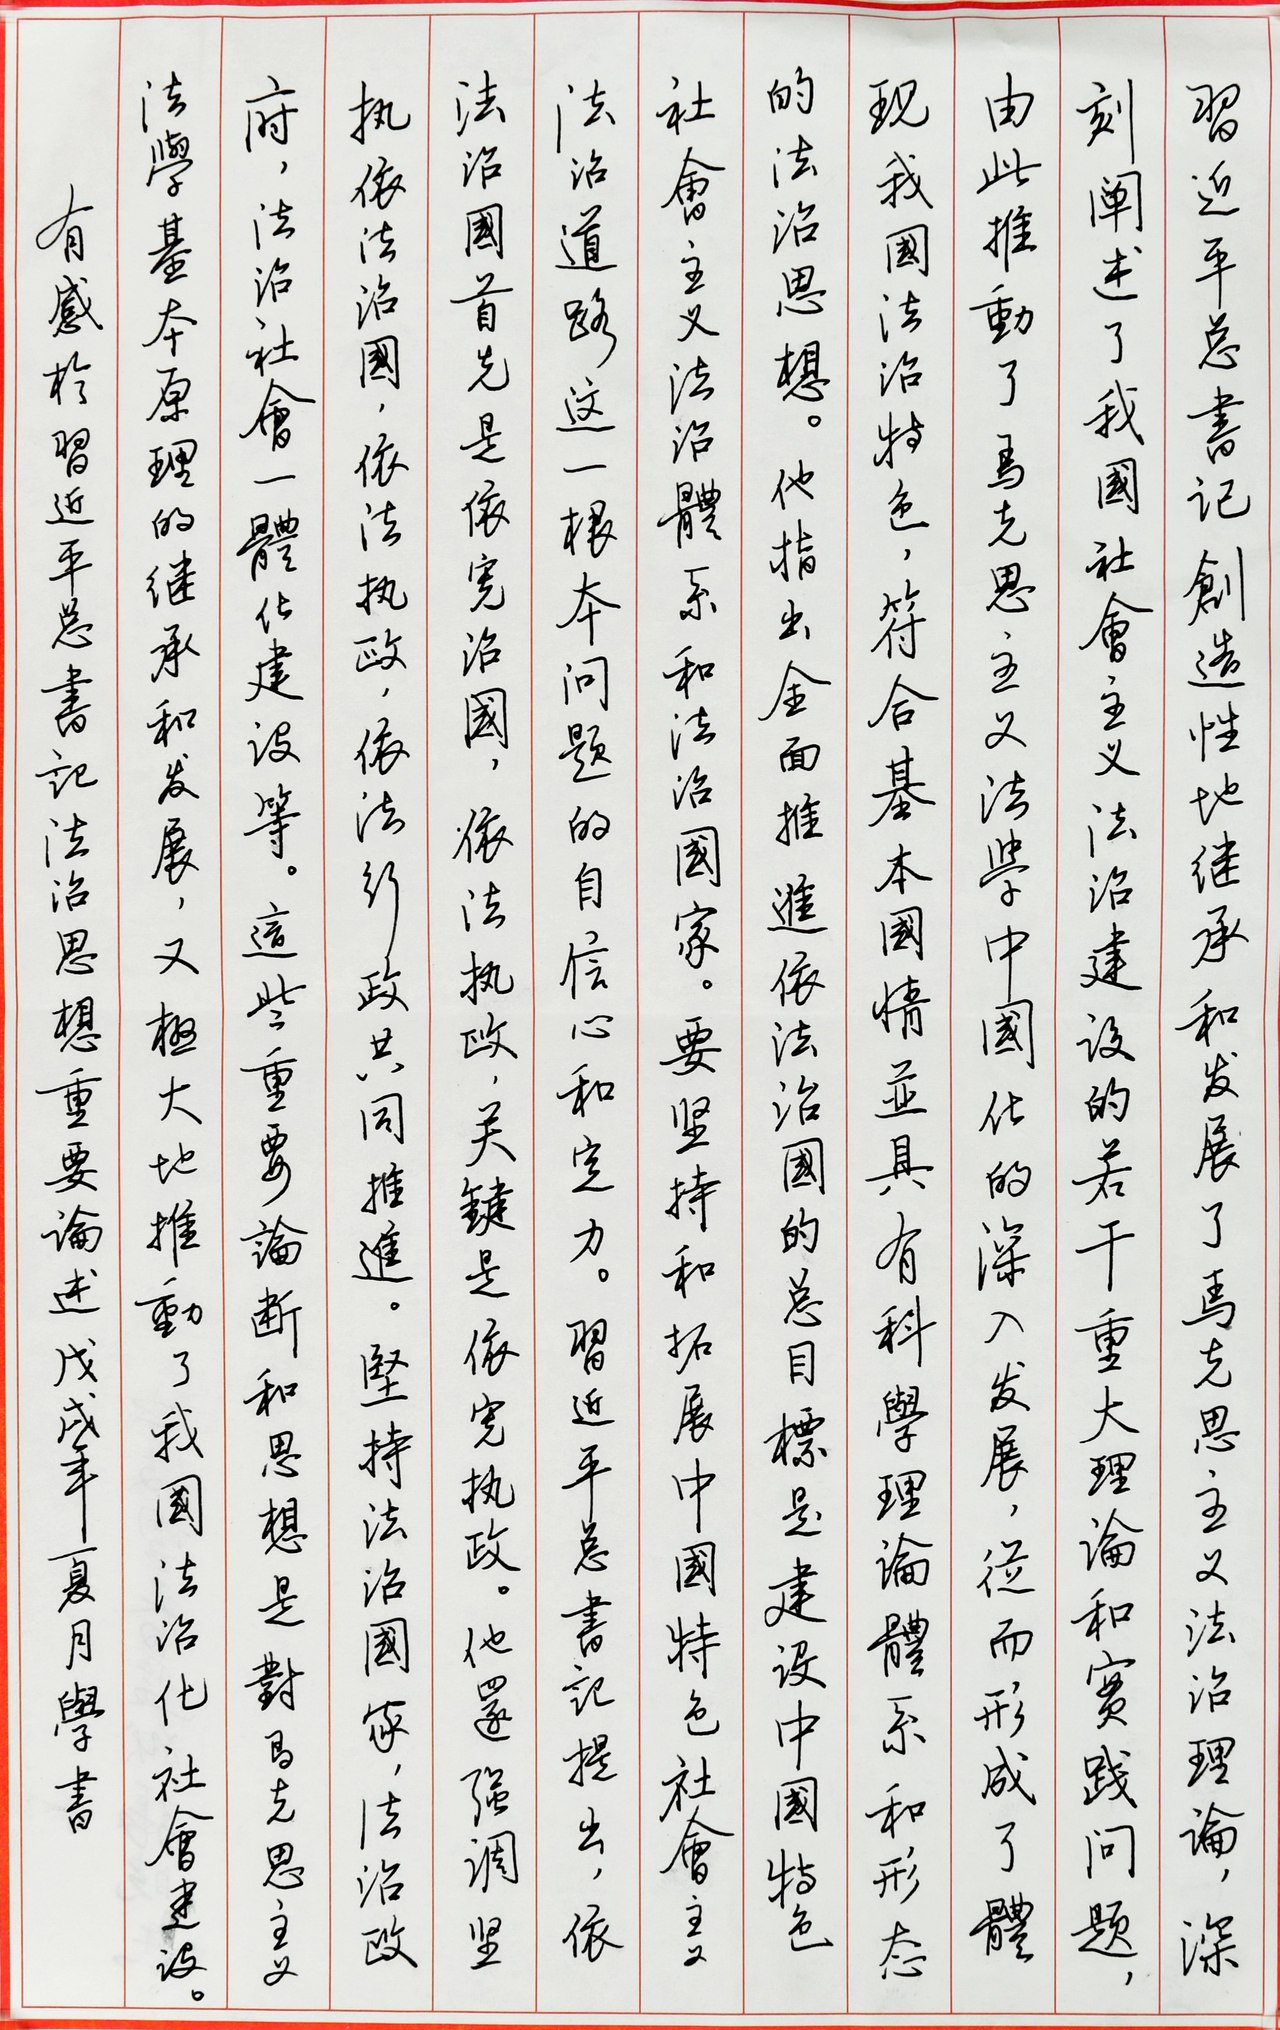 習近平总書记創造性地继承和发展了馬克思主义法治理論，深
刻阐述了我國社會主义法治建设的若干重大理論和實践问题，
由此推動了馬克思主义法學中國化的深入发展，從而形成了體
现我國法治特色，符合基本國情並具有科學理論體系和形态
的法治思想。他指出全面推進依法治國的总目標是建设中國特色
社會主义法治體系和法治國家。要坚持和拓展中國特色社會主义
法治道路这一根本问题的自信心和定力。習近平总書記提出，依
法治國首先是依宪治國，依法执政，关鍵是依宪执政。他還强调坚
执依法治國，依法执政，依法行政共同推進。堅持法治國家，法治政
府，法治社會一體化建设等。這些重要論断和思想是對马克思主义
法學基本原理的继承和发展，又極大地推動了我國法治化社會建设。
有感於習近平总書記法治思想重要論述戊戌年夏月學書